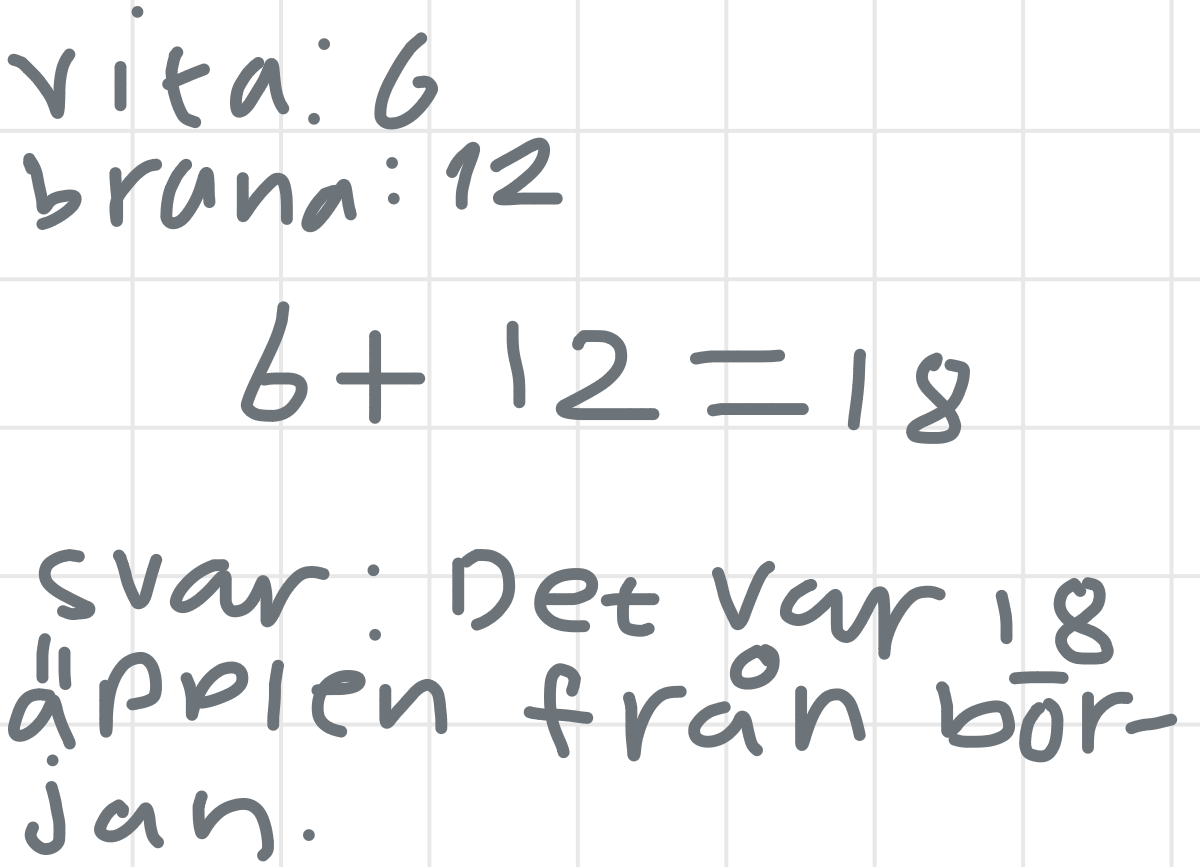 vita: 6
brana: 12
6 + 12 = 18
svar: Det var 18
äpplen från bör-
jan.